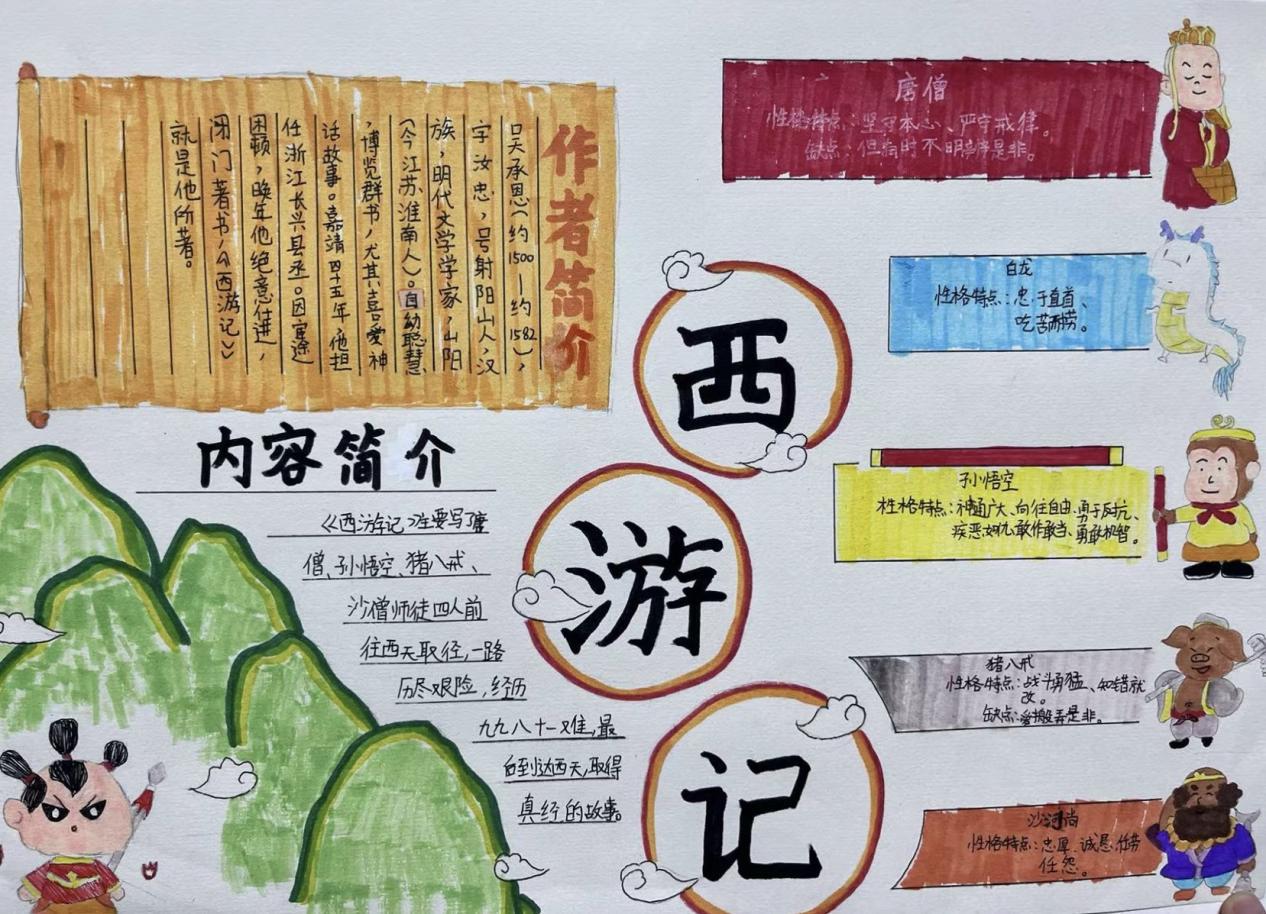 作者简介
吴承恩(约1500—约1582),
字汝忠,号射阳山人,汉
族,明代文学学家,山阳
(今江苏淮南人)。自幼聪慧
,博览群书,尤其喜爱神
话故事。嘉靖四十五年,他担
任浙江长兴县丞。因宦途
困顿,晚年他绝意仕进,
闭门著书,《西游记》
就是他所著。
内容简介
《西游记》主要写了唐
僧、孙悟空、猪八戒、
沙僧师徒四人前
往西天取径,一路
历尽艰险,经历
九九八十一难,最
后到达西天,取得
真经的故事。
西
游
记
唐僧
性格特点:坚守本心、严守戒律。
缺点:但有时不明辨是非。
白龙
性格特点:忠于直首、
吃苦耐劳。
孙悟空
性格特点:神通广大、向往自由、勇于反抗、
疾恶如仇、敢作敢当、勇敢机智。
猪八戒
性格特点:战斗勇猛、知错就
改。
缺点:爱搬弄是非。
沙河尚
性格特点:忠厚、诚恳、任劳
任怨。